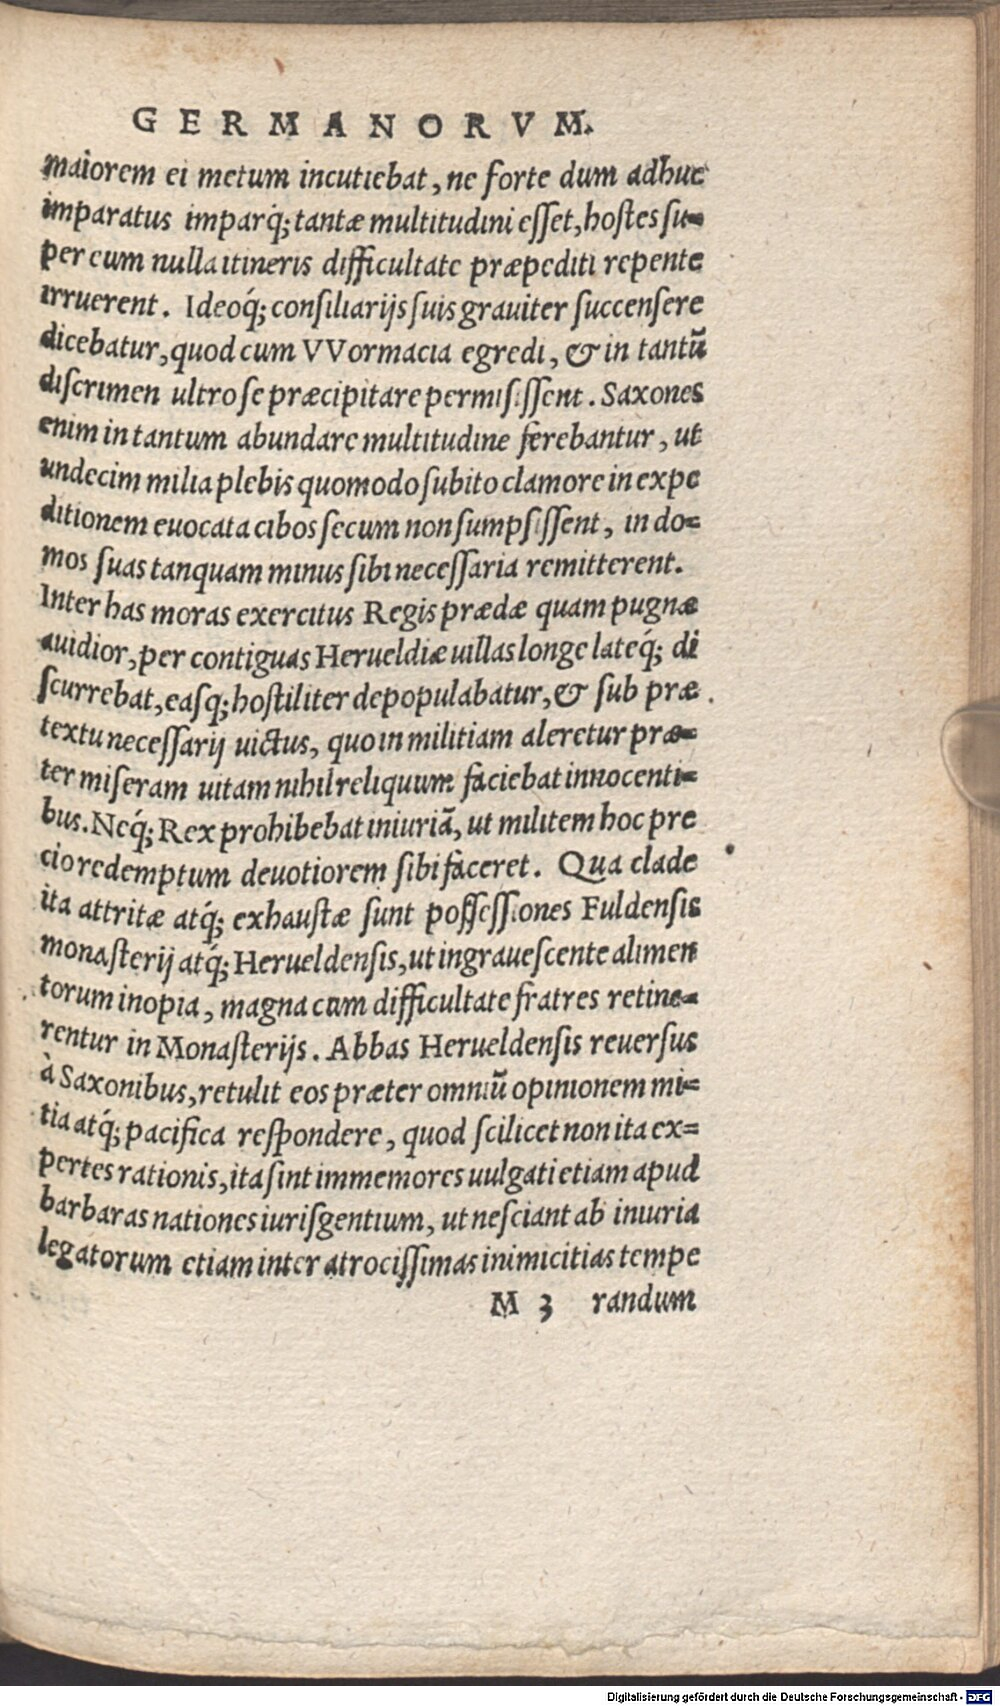 GERMANORVM.
maiorem ei metum incutiebat, ne forte dum adhuc
imparatus imparq́; tantæ multitudini esset, hostes su=
per eum nulla itineris difficultate præpediti repente
irruerent. Ideoq́; consiliarijs suis grauiter succensere
dicebatur, quod eum VVormacia egredi, & in tantũ
discrimen ultro se præcipitare permisissent. Saxones
enim in tantum abundare multitudine ferebantur, ut
undecim milia plebis quomodo subito clamore in expe
ditionem euocata cibos secum non sumpsissent, in do=
mos suas tanquam minus sibi necessaria remitterent.
Inter has moras exercitus Regis prædæ quam pugnæ
auidior, per contiguas Herueldiæ uillas longe lateq́; di
scurrebat, easq́; hostiliter depopulabatur, & sub præ
textu necessarij uictus, quo in militiam aleretur præ=
ter miseram uitam nihil reliquum faciebat innocenti=
bus. Neq́; Rex prohibebat iniuriã, ut militem hoc pre
cio redemptum deuotiorem sibi faceret. Qua clade
ita attritæ atq́; exhaustæ sunt possessiones Fuldensis
monasterij atq́; Herueldensis, ut ingrauescente alimen
torum inopia, magna cum difficultate fratres retine=
rentur in Monasterijs. Abbas Herueldensis reuersus
à Saxonibus, retulit eos præter omniũ opinionem mi=
tia atq́; pacifica respondere, quod scilicet non ita ex=
pertes rationis, ita sint immemores uulgati etiam apud
barbaras nationes iuris gentium, ut nesciant ab iniuria
legatorum etiam inter atrocissimas inimicitias tempe
M 3 randum
Digitalisierung gefördert durch die Deutsche Forschungsgemeinschaft - DFG